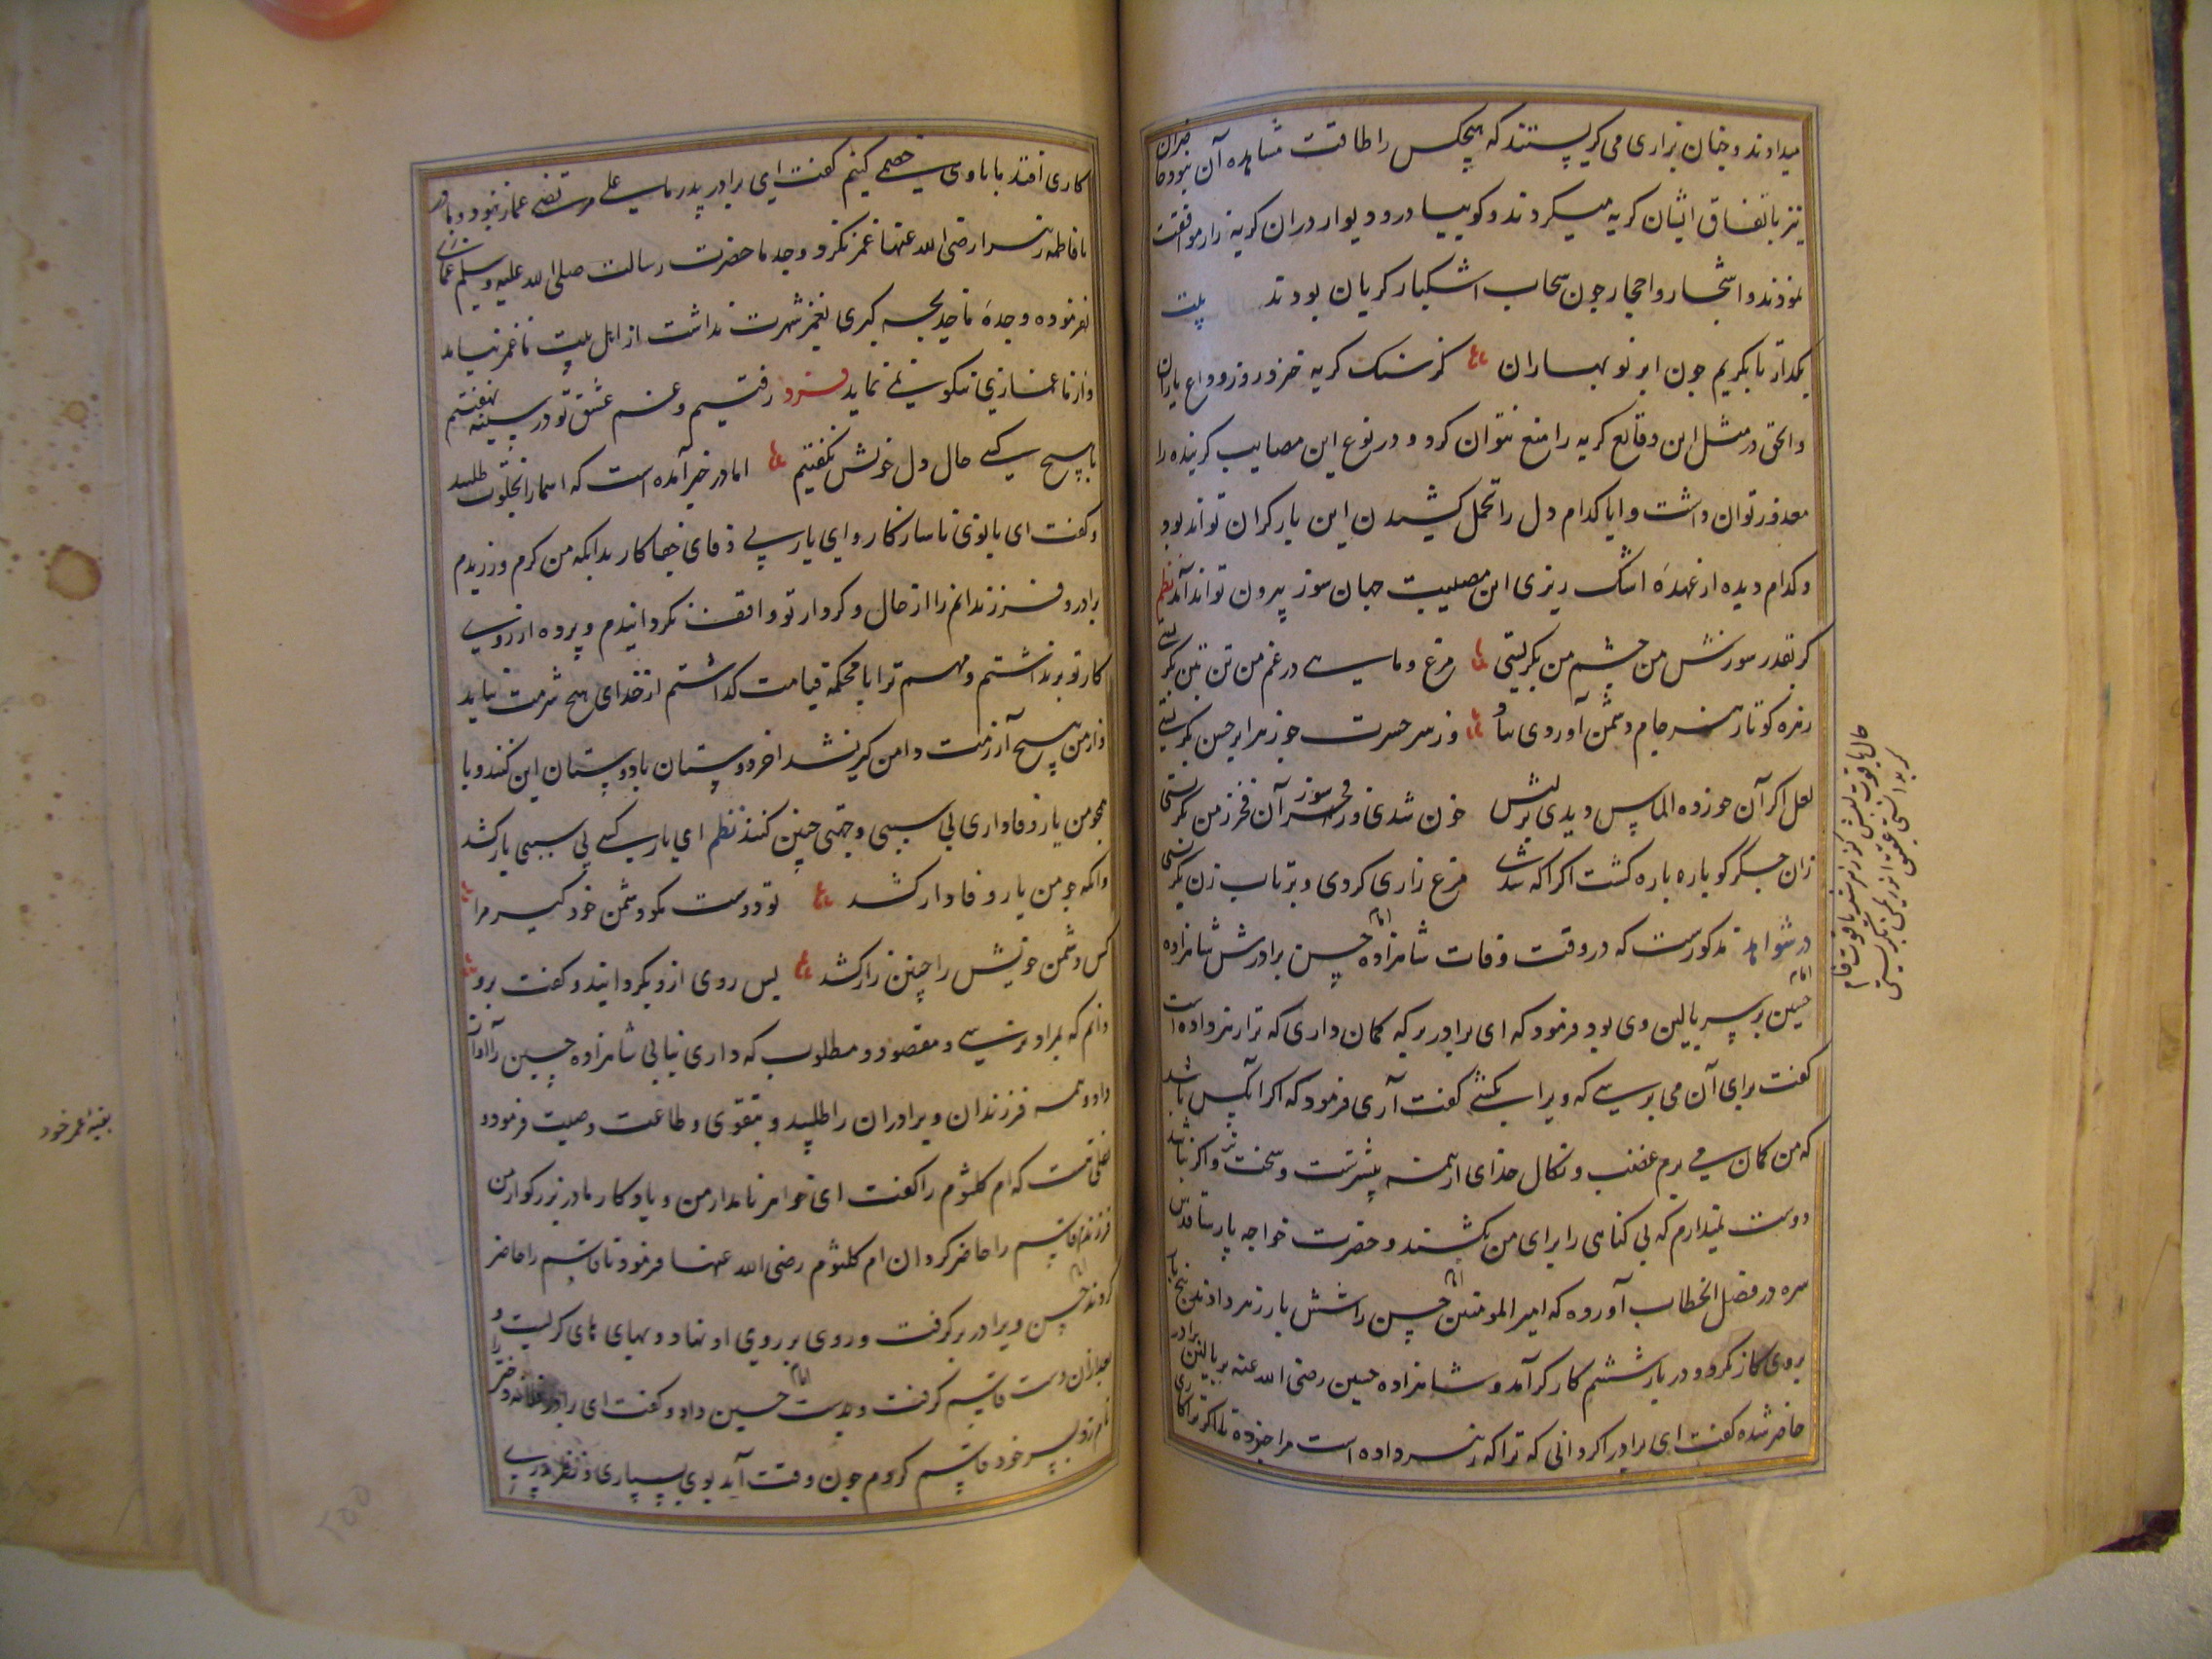 میدادند و چنان بزاری می کریستند که هیچکس را طاقت مشاهده آن نبود حاضران
نیز باتفاق ایشان کریه میکردند و کوییا در و دیوار دران کریه زار موافقت
نمودند و اشجار و احجار چون سحاب اشکبار کریان بودند بیت
بکذار تا بکریم چون ابر نوبهاران کز سنک کریه خیزد روز وداع یاران
والحق در مثل این وقایع کریه را منع نتوان کرد و در نوع این مصایب کرینده را
معذور توان داشت و ایا کدام دل را تحمل کشیدن این بار کران تواند بود
و کدام دیده از عهدهٔ اشک ریزی این مصیبت جهان سوز بیرون تواند آمد نظم
کر بقدر سوزش من چشم من بکریستی مرغ و ماهی در غم من تن بتن بکریستی
زهره کو تا زهر جام دشمن آوردی بیاد وز سر حسرت چو زهرا بر حسن بکریستی
لعل اکر آن حوزده الماس ویدی برلبش خون شدی و زحسرآن فخر زمن بکریستی
زان جکر کو باره باره کشت اکر اکه شدی مرغ زاری کردی و بر تاب زن بکریستی
در شواهد مذکورست که در وقت وفات شاهزاده امام حسن برادرش شاهزاده
امام حسین بر سر بالین وی بود فرمود که ای برادر بر که کمان داری که ترا زهر داده است
کفت برای آن می پرسی که ویرا بکشی کفت آری فرمود که اکر آنکس باشد
که من کمان می برم غضب و نکال خدای از همه بیشترست و سخت تر و اکر نباشد
دوست نمیدارم که بی کناهی را برای من بکشند و حضرت خواجه پارسا قدس
سره در فصل الخطاب آورده که امیر المومنین امام حسن را شش بار زهر دادند پنج بار
بروی کار نکرد و در بار ششم کار کر آمد و شاهزاده حسین رضی الله عنه بر بالین برادر
حاضر شده کفت ای برادر اکر دانی که ترا که زهر داده است مرا خبر ده تا اکر ترا کاری
حال یاقوت لبش کز زهر شد یاقوت فام
کر بدانستی عقیق اندر یمن بکریستی
کاری افتد ما با وی خصمی کنیم کفت ای برادر پدر ما علی مرتضی غماز نبود و مادر
ما فاطمه زهرا رضی الله عنها غمز نکرد و جد ما حضرت رسالت صلی الله علیه وسلم غمازی
نفرموده و جدهٔ ما خدیجه کبری بغمز شهرت نداشت از اهل بیت ما غمز نیاید
و از ما غمازی نیکو نمی نماید فرد رفتیم و غم عشق تو در سینه نهفتیم
با هیچ کسی حال دل خویش نکفتیم اما در خبر آمده است که اسما را بخلوت طلبید
و کفت ای بانوی ناسازکار و ای یار بی وفای جفاکار بدانکه من کرم ورزیدم
برادر و فرزندانم را از حال و کردار تو واقف نکردانیدم و پرده از روی
کار تو برنداشتم و مهم ترا با محکمه قیامت کذاشتم از خدای هیچ شرمت نیاید
و از من هیچ آزرمت دامن کیر نشد اخر دوستان با دوستان این کنند و با
همچو من یار وفاداری بی سببی و جهتی چنین کنند نظم ای یار کسی بی سببی یار کشد
وانکه چو من یار وفادار کشد تو دوست مکو دشمن خود کیر مرا
کس دشمن خویش را چنین زار کشد پس روی ازو بکردانید و کفت برو
دانم که بمراد نرسی و مقصود و مطلوب که داری نیابی شاهزاده حسین را آواز
داد و همه فرزندان و برادران را طلبید و بتقوی و طاعت وصیت فرمود و
نقلی هست که ام کلثوم را کفت ای خواهر نامدار من و یادکار مادر بزرکوار من
فرزندم قاسم را حاضر کردان ام کلثوم رضی الله عنها فرمود تا قاسم را حاضر
کردند امام حسن ویرا در بر کرفت و روی بر روی او نهاد و بهای های کریست و
بعد ازان دست قاسم کرفت و بدست امام حسین داد و کفت ای برادر فلانه دختر را
نامزد پسر خود قاسم کردم چون وقت آید بوی سپاری و نظر
بقیه عمر خود